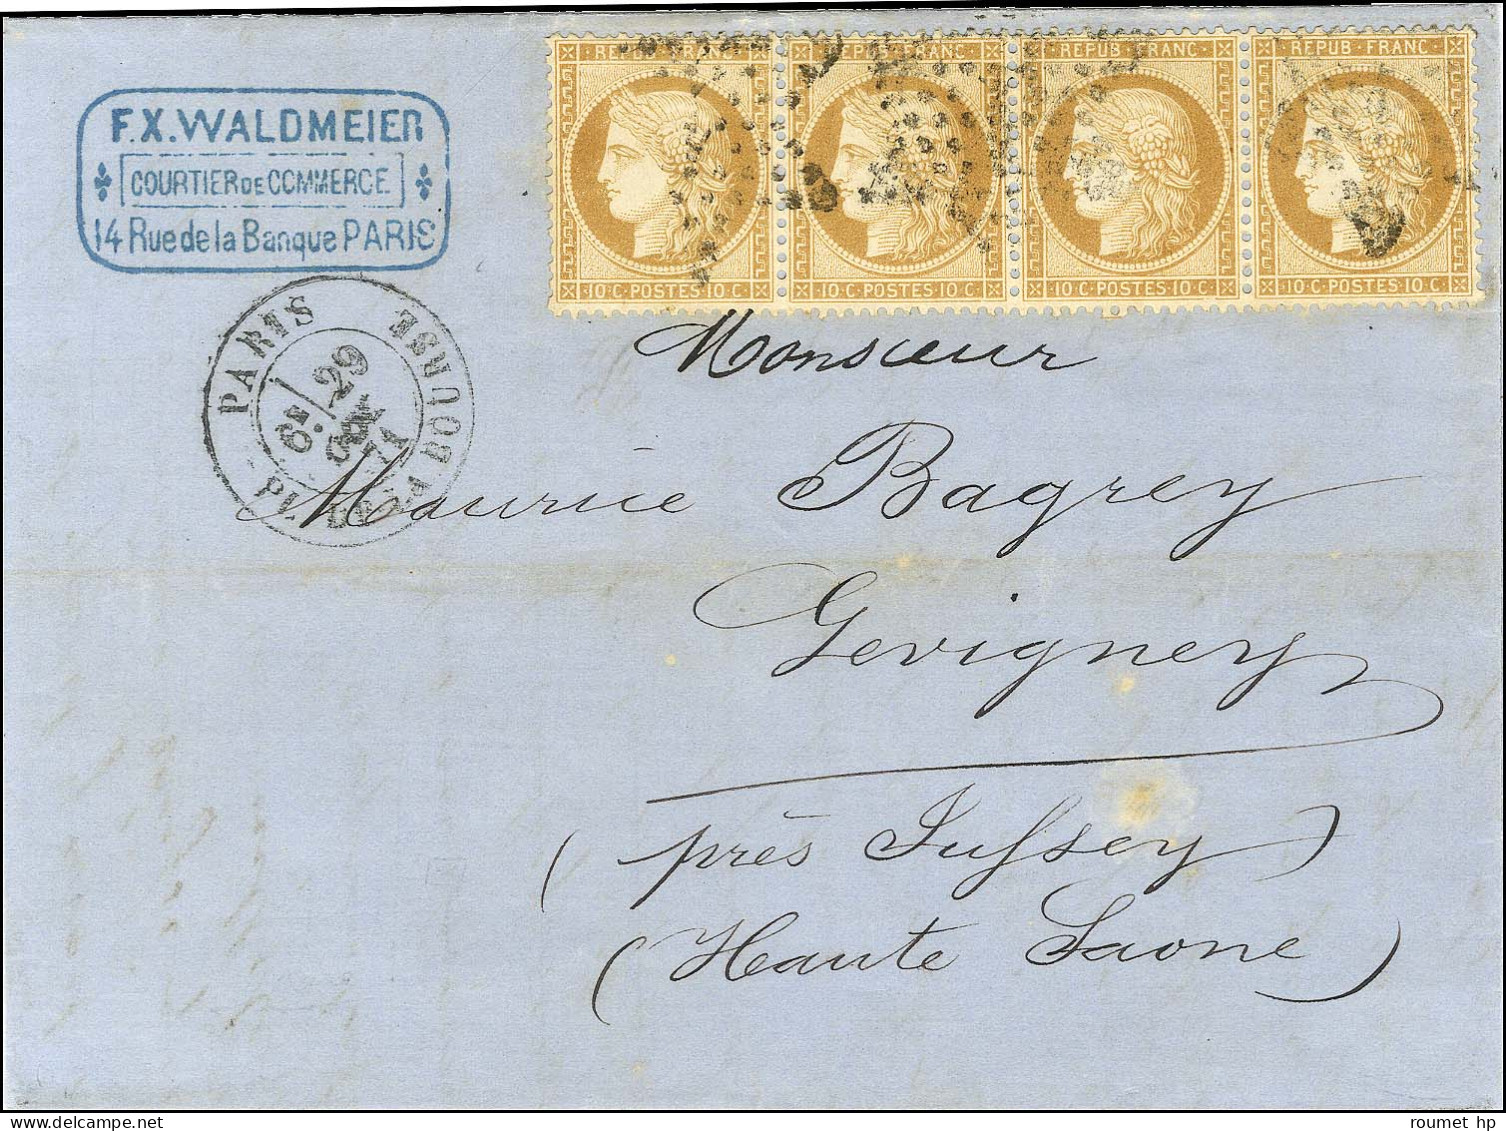 F.X. WALDMEIER
COURTIER DE COMMERCE
14 Rue de la Banque PARIS
REPUB · FRANC
10 C · POSTES 10 C
REPUB · FRANC
10 C · POSTES 10 C
REPUB · FRANC
10 C · POSTES 10 C
REPUB · FRANC
10 C · POSTES 10 C
PARIS
PL. DE LA BOURSE
6E / 29
71
Monsieur
Maurice Bagrey
Gevigney
( près Jussey )
( Haute Saone )
roumet hp